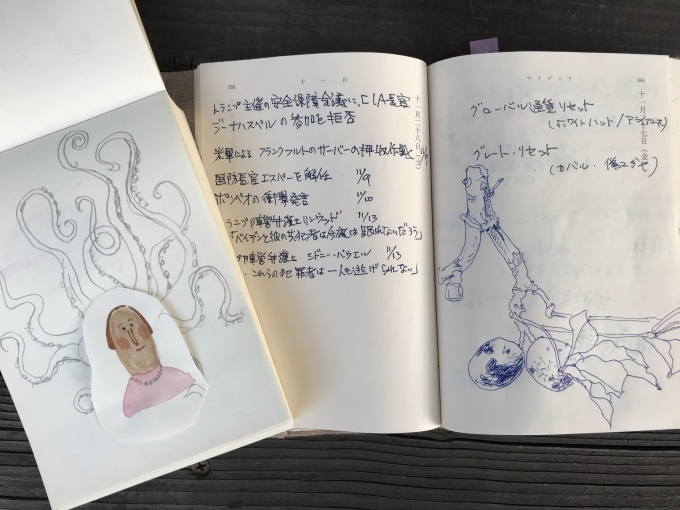 358
十一月
十一月二十八日(金)
トランプ主催の安全保障会議に、CIA長官
ジーナハスペルの参加を拒否
米軍による フランクフルトのサーバーの押収作戦
国防長官エスパーを解任 11/9
ポンペオの衝撃発言 11/10
ランプ陣営弁護士リンウッド 11/13
「バイデンと彼の共犯者は今度は眠れないだろう」
陣営弁護士 シドニー・パウエル 11/13
これらの犯罪者は一人も逃げられない」
マイブック
十一月 七日(金)
グローバル通貨リセット
(ホワイトハット/アライアンス)
グレート・リセット
(カバル・